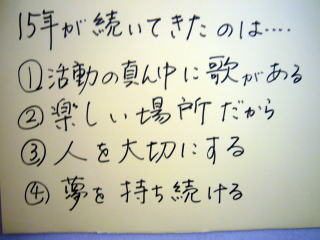 15年が続いてきたのは‥‥
①活動の真ん中に歌がある
②楽しい場所だから
③人を大切にする
④夢を持ち続ける